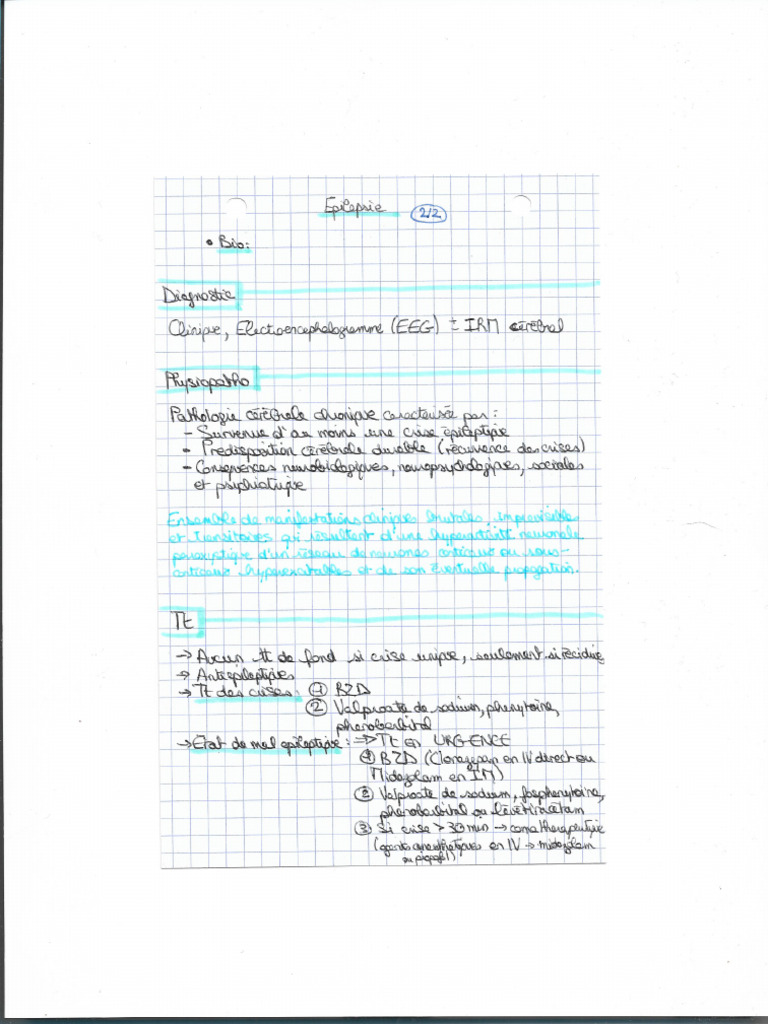 Epilepsie 2/2
• Bio:
Diagnostic
Clinique, Electroencephalogramme (EEG) ± IRM cérébral
Physiopatho
Pathologie cérébrale chronique caractérisée par :
- Survenue d'au moins une crise épileptique
- Prédisposition cérébrale durable (récurrence des crises)
- Conséquences neurobiologiques, neuropsychologiques, sociales
et psychiatrique
Ensemble de manifestations cliniques brutales, imprévisible
et transitoires qui résultent d'une hyperactivité neuronale
paroxystique d'un réseau de neurones corticaux ou sous-
corticaux hyperexcitables et de son éventuelle propagation.
Tt
→ Aucun tt de fond si crise unique, seulement si récidive
→ Antiépileptiques
→ Tt des crises: ① BZD
② Valproate de sodium, phénytoïne,
phénobarbital
→ État de mal épileptique : => Tt en URGENCE
① BZD (Clonazepam en IV direct ou
Midazolam en IM)
② Valproate de sodium, fosphénytoïne,
phénobarbital ou lévétiracétam
③ Si crise > 30 min → coma thérapeutique
(agents anesthétiques en IV → midazolam
ou propofol)